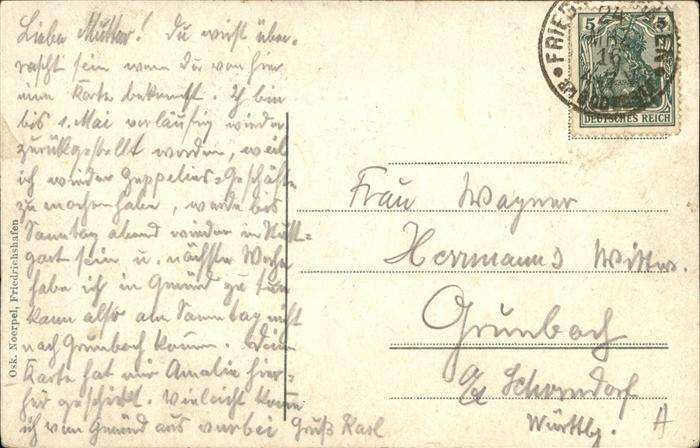 Liebe Mutter! Du wirst über-
rascht sein wenn du von hier
eine Karte bekommst. Ich bin
bis 1. Mai vorläufig wieder
zurückgestellt worden, weil
ich wieder Zeppelins=Geschäfte
zu machen habe, werde bis
Sonntag abend wieder in Stutt=
gart sein u. nächste Woche
habe ich in Gmünd zu tun
kann also am Sonntag nicht
nach Grunbach kommen. Deine
Karte hat mir Amalie hier=
her geschickt. Vielleicht komme
ich von Gmünd aus vorbei Gruß Karl
Osk. Noerpel, Friedrichshafen
FRIED
16
5
DEUTSCHES REICH
Frau Wagner
Herrmanns Wittw.
Grunbach
Schorndorf
Württbg.
A